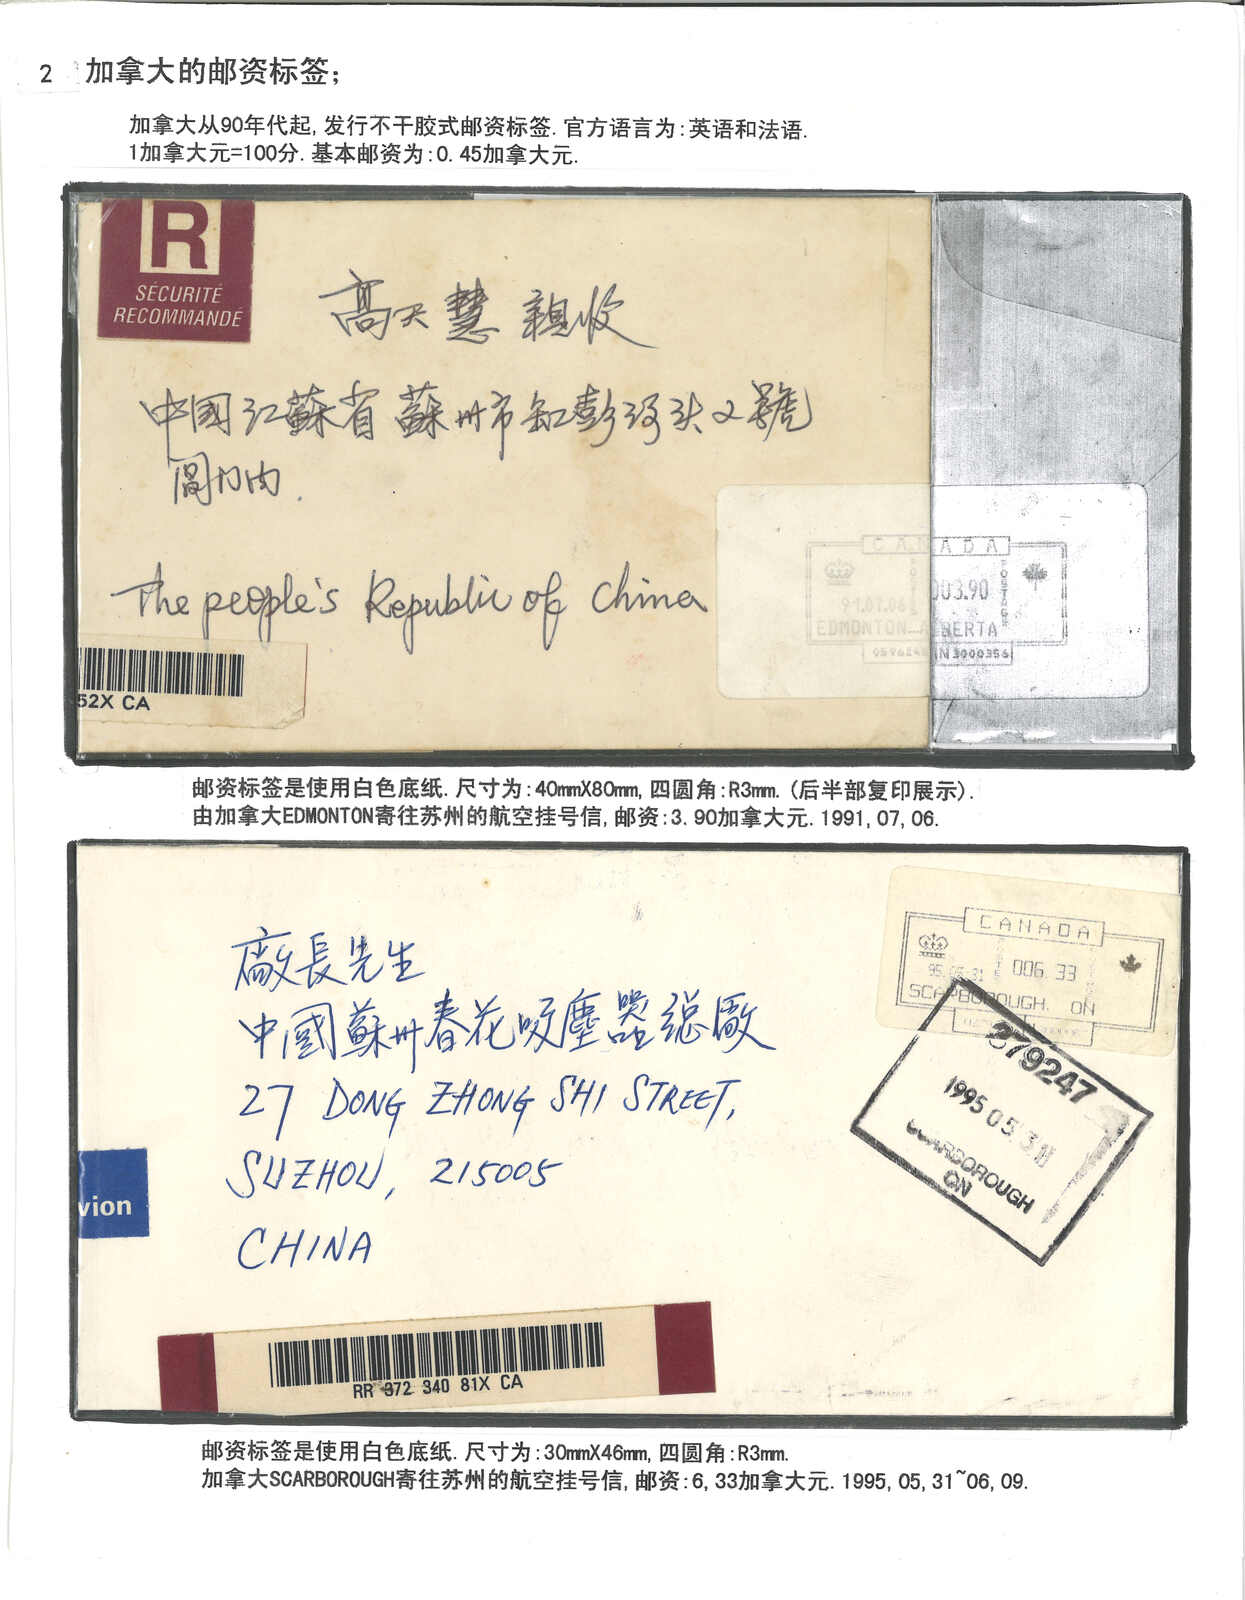 2 加拿大的邮资标签;
加拿大从90年代起,发行不干胶式邮资标签.官方语言为:英语和法语.
1加拿大元=100分.基本邮资为:0.45加拿大元.
R
SÉCURITÉ
RECOMMANDÉ
高天慧 親收
中國江蘇省蘇州市缸彭河头2號
閶门内.
The people's Republic of China
CANADA
POSTAGE
003.90
91.07.06
EDMONTON ALBERTA
N3000356
52X CA
邮资标签是使用白色底纸.尺寸为:40mmX80mm,四圆角:R3mm.(后半部复印展示).
由加拿大EDMONTON寄往苏州的航空挂号信,邮资:3.90加拿大元.1991,07,06.
CANADA
006.33
95.05.31
SCARBOROUGH, ON
廠長先生
中國蘇州春花吸塵器總廠
27 DONG ZHONG SHI STREET,
SUZHOU, 215005
CHINA
379247
1995 05 31
SCARBOROUGH
ON
vion
RR 372 340 81X CA
邮资标签是使用白色底纸.尺寸为:30mmX46mm,四圆角:R3mm.
加拿大SCARBOROUGH寄往苏州的航空挂号信,邮资:6,33加拿大元.1995,05,31~06,09.